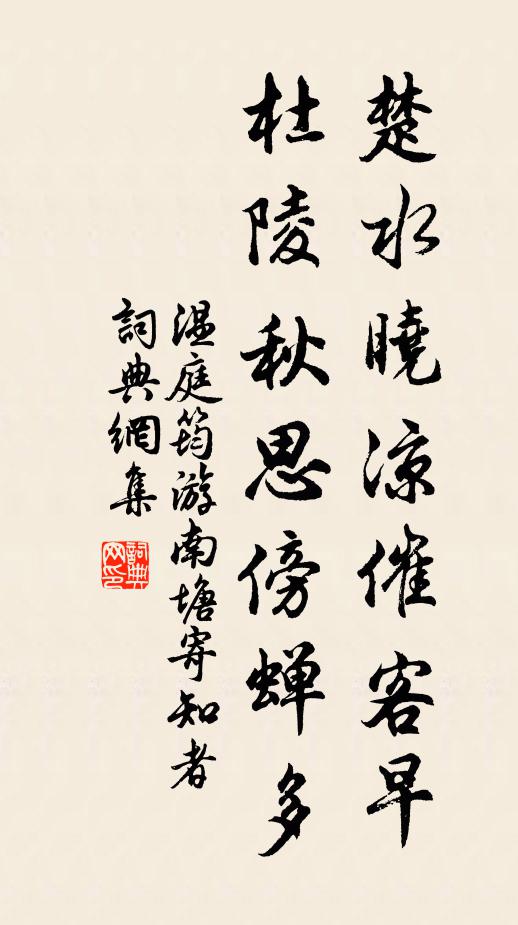 楚水曉涼催客早
杜陵秋思傍蟬多
温庭筠游南塘寄知者
詞典網集
詞典网印